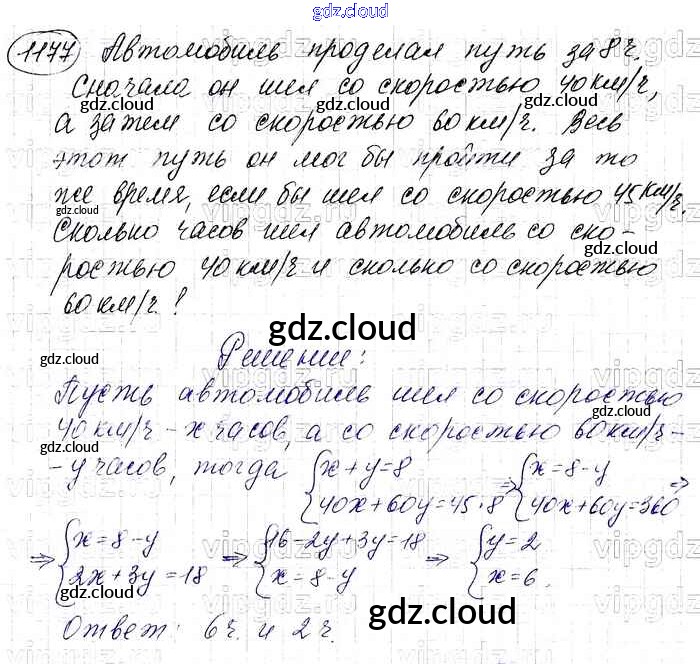 gdz.cloud
1177 Автомобиль проделал путь за 8 ч.
Сначала он шел со скоростью 40 км/ч,
gdz.cloud gdz.cloud
а затем со скоростью 60 км/ч. Весь
gdz.cloud
этот путь он мог бы пройти за то
же время, если бы шел со скоростью 45 км/ч.
gdz.cloud
Сколько часов шел автомобиль со ско-
gdz.cloud
ростью 40 км/ч и сколько со скоростью
60 км/ч!
gdz.cloud
Решение:
gdz.cloud
Пусть автомобиль шел со скоростью
gdz.cloud
40 км/ч - x часов, а со скоростью 60 км/ч -
- y часов, тогда {x+y=8 ⇒ {x=8-y ⇒
{40x+60y=45·8 {40x+60y=360
gdz.cloud gdz.cloud
⇒ {x=8-y ⇒ {16-2y+3y=18 ⇒ {y=2
{2x+3y=18 {x=8-y {x=6.
gdz.cloud
Ответ: 6 ч. и 2 ч.
gdz.cloud